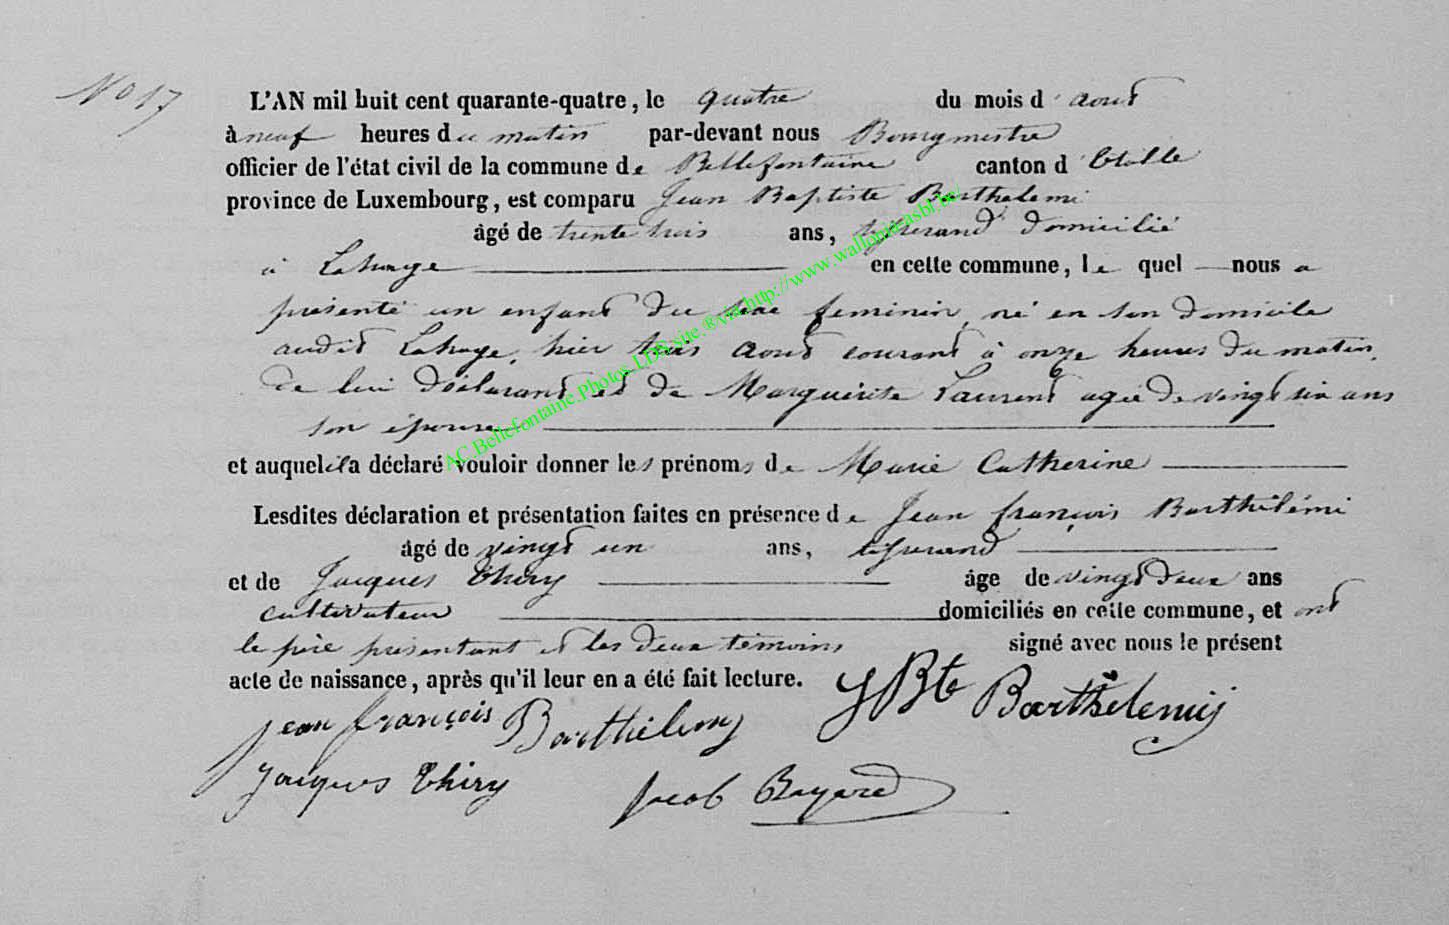 No 17
L'AN mil huit cent quarante-quatre, le quatre du mois d'aout
à neuf heures du matin par-devant nous Bourgmestre
officier de l'état civil de la commune de Bellefontaine canton d'Etalle
province de Luxembourg, est comparu Jean Baptiste Barthelemi
âgé de trente trois ans, tisserand domicilié
à Lahage en cette commune, le quel nous a
présenté un enfant du sexe feminin, né en son domicile
audit Lahage, hier trois aout courant à onze heures du matin,
de lui déclarant et de Marguerite Laurent agée de vingt six ans
son épouse
et auquel il a déclaré vouloir donner les prénoms de Marie Catherine
Lesdites déclaration et présentation faites en présence de Jean françois Barthélémi
âgé de vingt un ans, tisserand
et de Jacques Thiry âge de vingt deux ans
cultivateur domiciliés en cette commune, et ont
le père présentant et les deux témoins signé avec nous le présent
acte de naissance, après qu'il leur en a été fait lecture.
J Bte Barthelemij
jean françois Barthélemy
jacques thiry jacob Bayard
AC.Bellefontaine.Photos.LDS.site.®via.http://www.walloniaasbl.be/